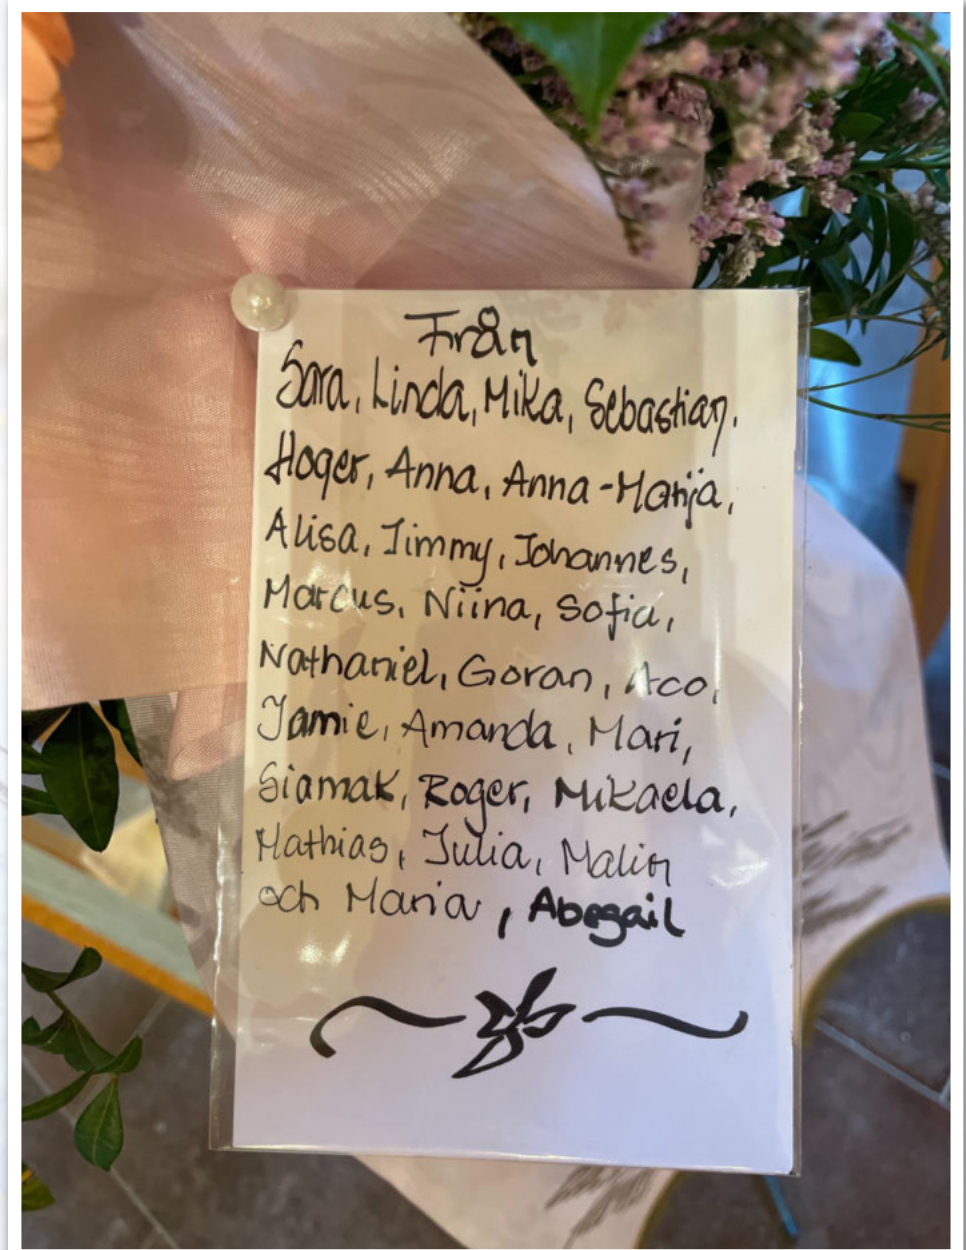 Från
Sara, Linda, Mika, Sebastian,
Hoger, Anna, Anna-Marija,
Alisa, Jimmy, Johannes,
Marcus, Niina, Sofia,
Nathaniel, Goran, Aco,
Jamie, Amanda, Mari,
Siamak, Roger, Mikaela,
Mathias, Julia, Malin
och Maria, Abegail